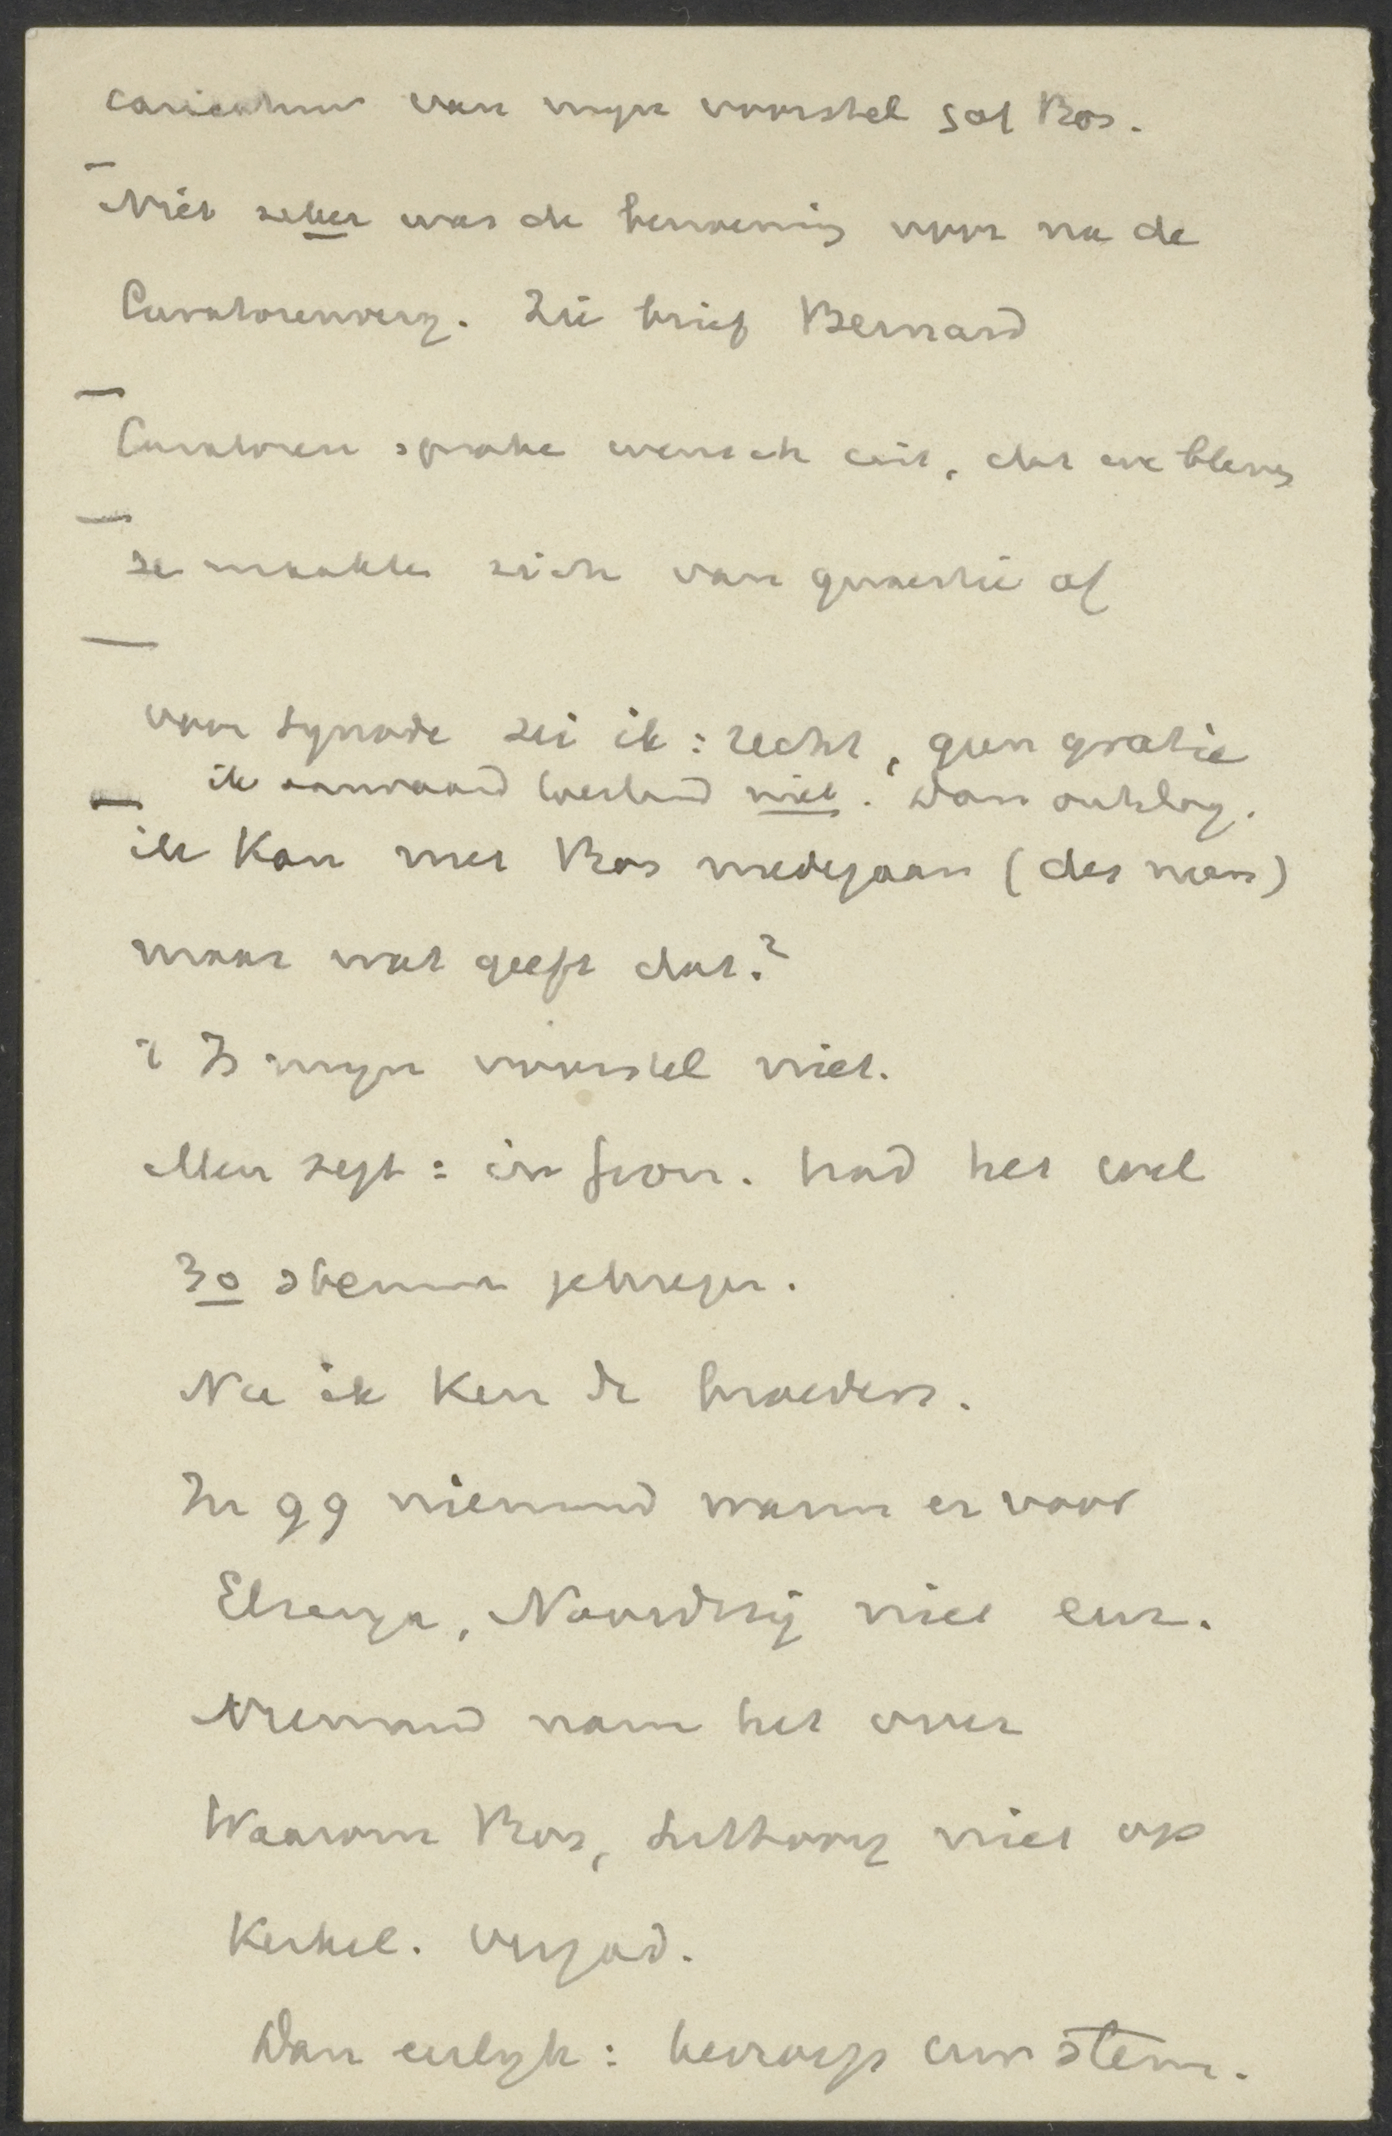 caricatuur van mijn voorstel gaf Bos.
– Niet zeker was de benoeming voor na de
Curatorenverg. Zie brief Bernard
– Curatoren sprake wensch uit, dat we bleven
– ze maakte zich van quaestie af
– voor Synode zei ik: recht, geen gratie
ik aanvaard niet. Dan ontslag.
– ik kan met Bos medegaan (des noods)
maar wat geeft dat?
't Is mijn voorstel niet.
Men zegt: in had het wel
30 stemmen gekregen.
Nee ik ken de broeders.
In 99 niemand warm er voor
Elzenga, Noordtzij niet eens.
Niemand nam het over
Waarom Bos, Littooy niet op
Kerkel. vergad.
Dan eerlijk: beroep stem.